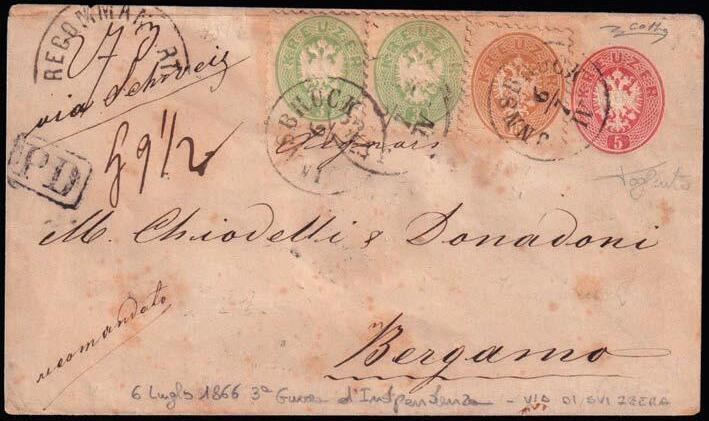 RECOMMANDIRT
via Schweiz
PD
KREUZER
KREUZER
KREUZER
KREUZER
5
INNSBRUCK
INNSBRUCK
9 1/2
M. Chiodelli & Donadoni
recomandato
Bergamo
6 Luglio 1866 3ª Guerra d'Indipendenza - VIA DI SVIZZERA